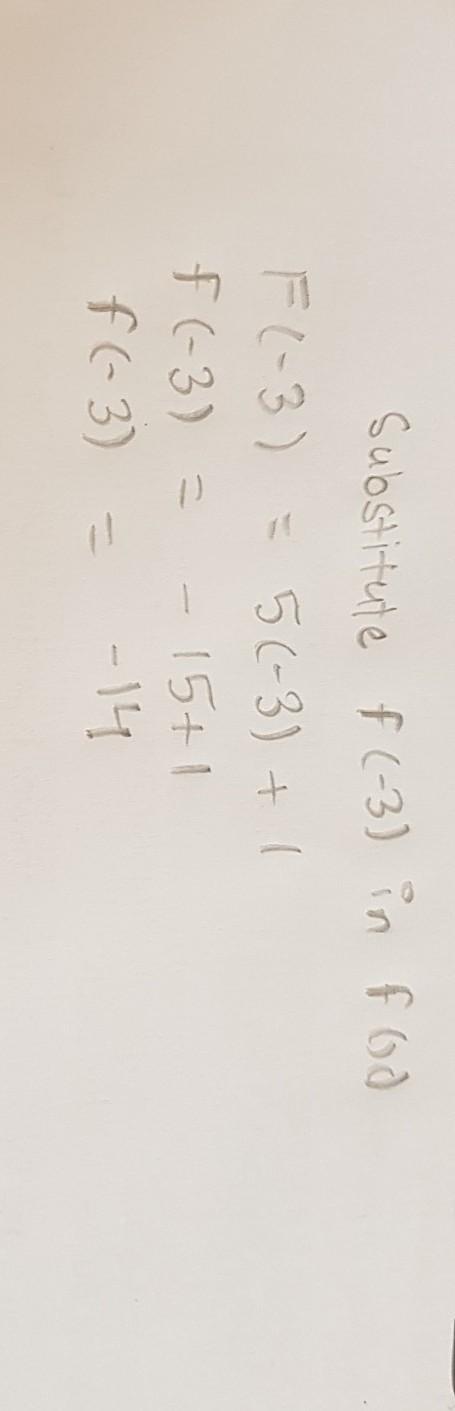 Substitute f(-3) in f(x)
F(-3) = 5(-3) + 1
f(-3) = -15+1
f(-3) = -14